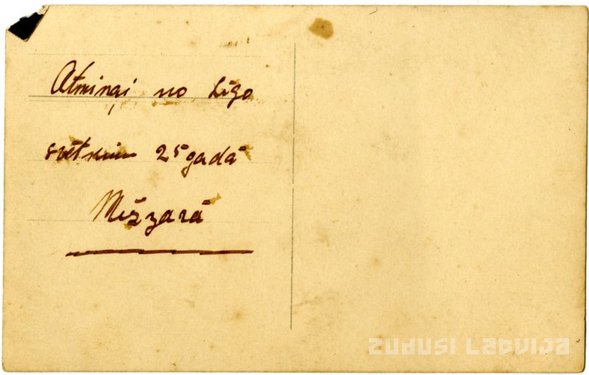 Atmiņai no Līgo
svētkiem 25 gadā
Mežzarā
ZUDUSI LATVIJA